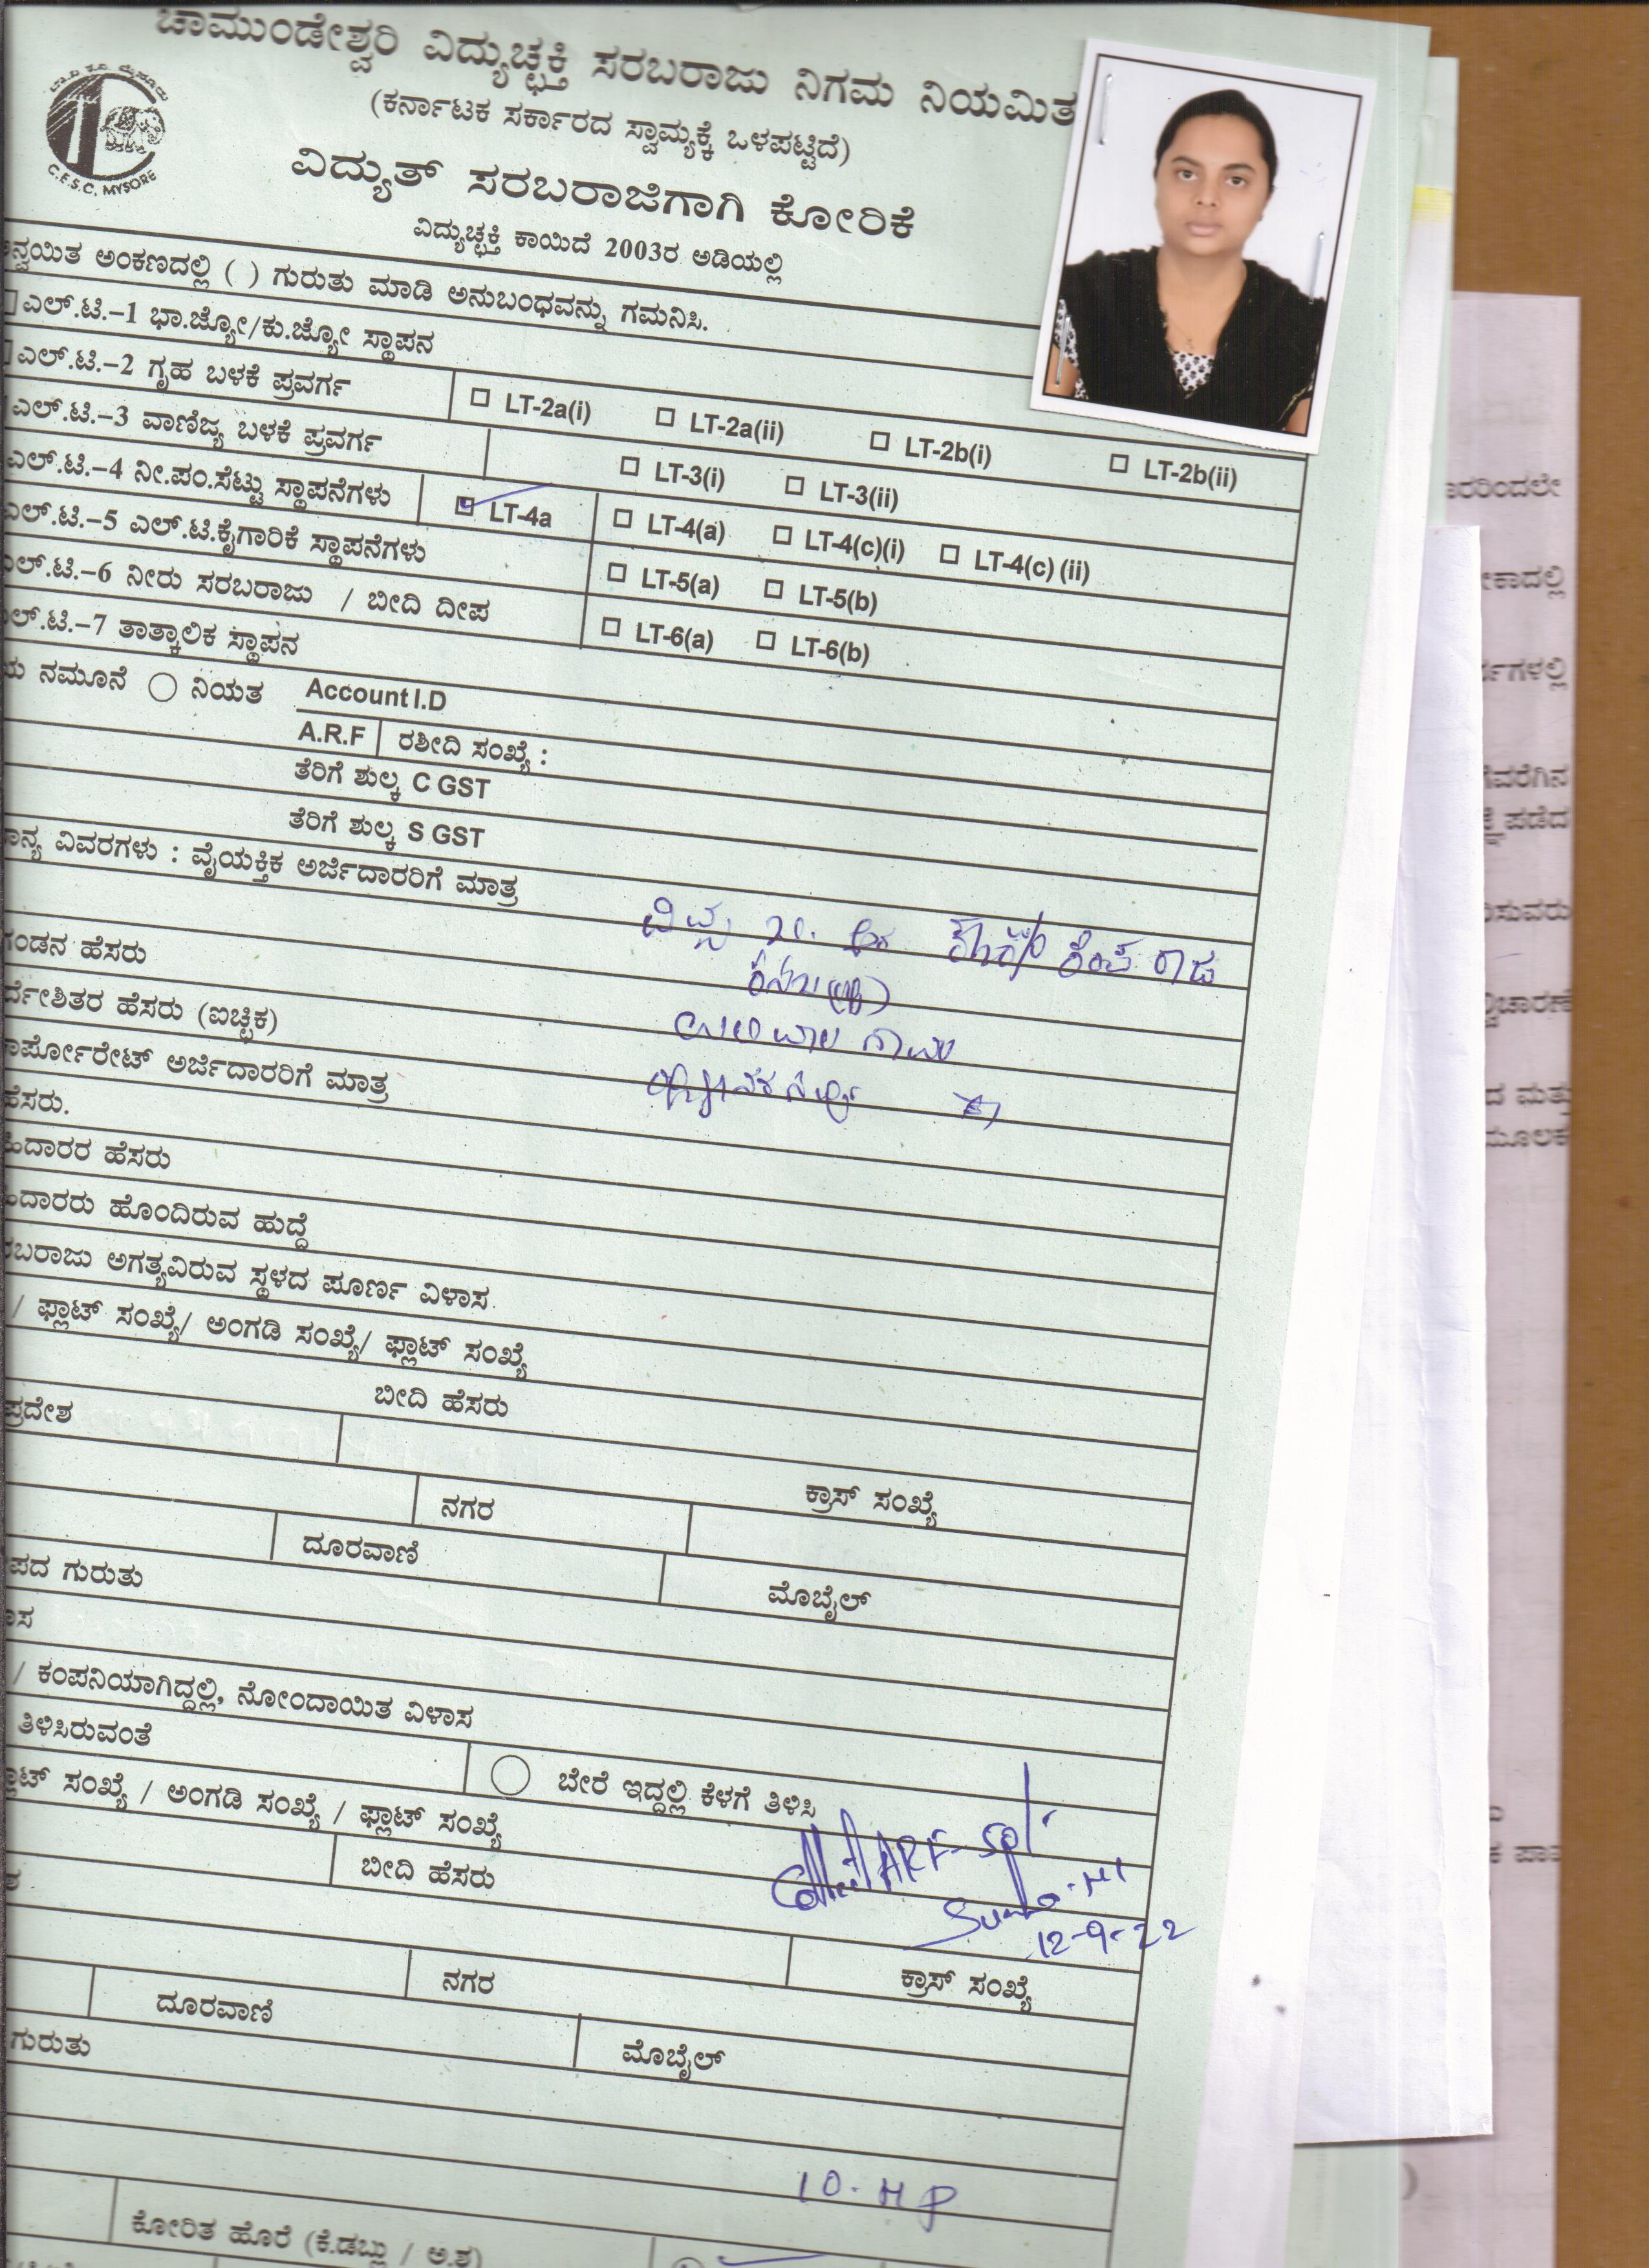 ಚಾಮುಂಡೇಶ್ವರಿ ವಿದ್ಯುಚ್ಛಕ್ತಿ ಸರಬರಾಜು ನಿಗಮ ನಿಯಮಿತ
(ಕರ್ನಾಟಕ ಸರ್ಕಾರದ ಸ್ವಾಮ್ಯಕ್ಕೆ ಒಳಪಟ್ಟಿದೆ)
C.E.S.C. MYSORE
ವಿದ್ಯುತ್ ಸರಬರಾಜಿಗಾಗಿ ಕೋರಿಕೆ
ವಿದ್ಯುಚ್ಛಕ್ತಿ ಕಾಯಿದೆ 2003ರ ಅಡಿಯಲ್ಲಿ
ನ್ವಯಿತ ಅಂಕಣದಲ್ಲಿ ( ) ಗುರುತು ಮಾಡಿ ಅನುಬಂಧವನ್ನು ಗಮನಿಸಿ.
ಎಲ್.ಟಿ.-1 ಭಾ.ಜ್ಯೋ/ಕು.ಜ್ಯೋ ಸ್ಥಾಪನ
ಎಲ್.ಟಿ.-2 ಗೃಹ ಬಳಕೆ ಪ್ರವರ್ಗ LT-2a(i) LT-2a(ii) LT-2b(i) LT-2b(ii)
ಎಲ್.ಟಿ.-3 ವಾಣಿಜ್ಯ ಬಳಕೆ ಪ್ರವರ್ಗ LT-3(i) LT-3(ii)
ಎಲ್.ಟಿ.-4 ನೀ.ಪಂ.ಸೆಟ್ಟು ಸ್ಥಾಪನೆಗಳು LT-4a LT-4(a) LT-4(c)(i) LT-4(c) (ii)
ಎಲ್.ಟಿ.-5 ಎಲ್.ಟಿ.ಕೈಗಾರಿಕೆ ಸ್ಥಾಪನೆಗಳು LT-5(a) LT-5(b)
ಎಲ್.ಟಿ.-6 ನೀರು ಸರಬರಾಜು / ಬೀದಿ ದೀಪ LT-6(a) LT-6(b)
ಲ್.ಟಿ.-7 ತಾತ್ಕಾಲಿಕ ಸ್ಥಾಪನ
ಯ ನಮೂನೆ ನಿಯತ Account I.D
A.R.F ರಶೀದಿ ಸಂಖ್ಯೆ :
ತೆರಿಗೆ ಶುಲ್ಕ C GST
ತೆರಿಗೆ ಶುಲ್ಕ S GST
ಾನ್ಯ ವಿವರಗಳು : ವೈಯಕ್ತಿಕ ಅರ್ಜಿದಾರರಿಗೆ ಮಾತ್ರ
ಗಂಡನ ಹೆಸರು
ರ್ದೇಶಿತರ ಹೆಸರು (ಐಚ್ಛಿಕ)
ಾರ್ಪೋರೇಟ್ ಅರ್ಜಿದಾರರಿಗೆ ಮಾತ್ರ
ಹೆಸರು.
ಹಿದಾರರ ಹೆಸರು
ಹಿದಾರರು ಹೊಂದಿರುವ ಹುದ್ದೆ
ರಬರಾಜು ಅಗತ್ಯವಿರುವ ಸ್ಥಳದ ಪೂರ್ಣ ವಿಳಾಸ
/ ಫ್ಲಾಟ್ ಸಂಖ್ಯೆ/ ಅಂಗಡಿ ಸಂಖ್ಯೆ/ ಫ್ಲಾಟ್ ಸಂಖ್ಯೆ
ಬೀದಿ ಹೆಸರು
ಪ್ರದೇಶ
ನಗರ ಕ್ರಾಸ್ ಸಂಖ್ಯೆ
ದೂರವಾಣಿ ಮೊಬೈಲ್
ಪದ ಗುರುತು
ಾಸ
/ ಕಂಪನಿಯಾಗಿದ್ದಲ್ಲಿ, ನೋಂದಾಯಿತ ವಿಳಾಸ
ತಿಳಿಸಿರುವಂತೆ ಬೇರೆ ಇದ್ದಲ್ಲಿ ಕೆಳಗೆ ತಿಳಿಸಿ
ಲಾಟ್ ಸಂಖ್ಯೆ / ಅಂಗಡಿ ಸಂಖ್ಯೆ / ಫ್ಲಾಟ್ ಸಂಖ್ಯೆ
ಬೀದಿ ಹೆಸರು
ARF
12-9-22
ನಗರ ಕ್ರಾಸ್ ಸಂಖ್ಯೆ
ದೂರವಾಣಿ ಮೊಬೈಲ್
ಗುರುತು
10. HP
ಕೋರಿತ ಹೊರೆ (ಕೆ.ಡಬ್ಲು / ಅ.ಶ)